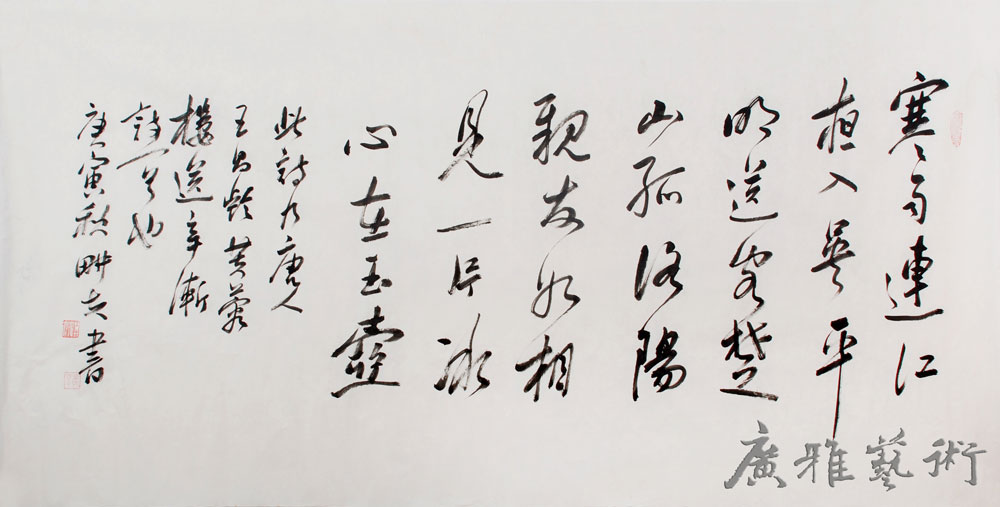 寒雨連江
夜入吳平
明送客楚
山孤洛陽
親友如相
見一片冰
心在玉壺
此詩乃唐人
王昌齡芙蓉
樓送辛漸
詩一首也
庚寅秋畊書
廣雅藝術